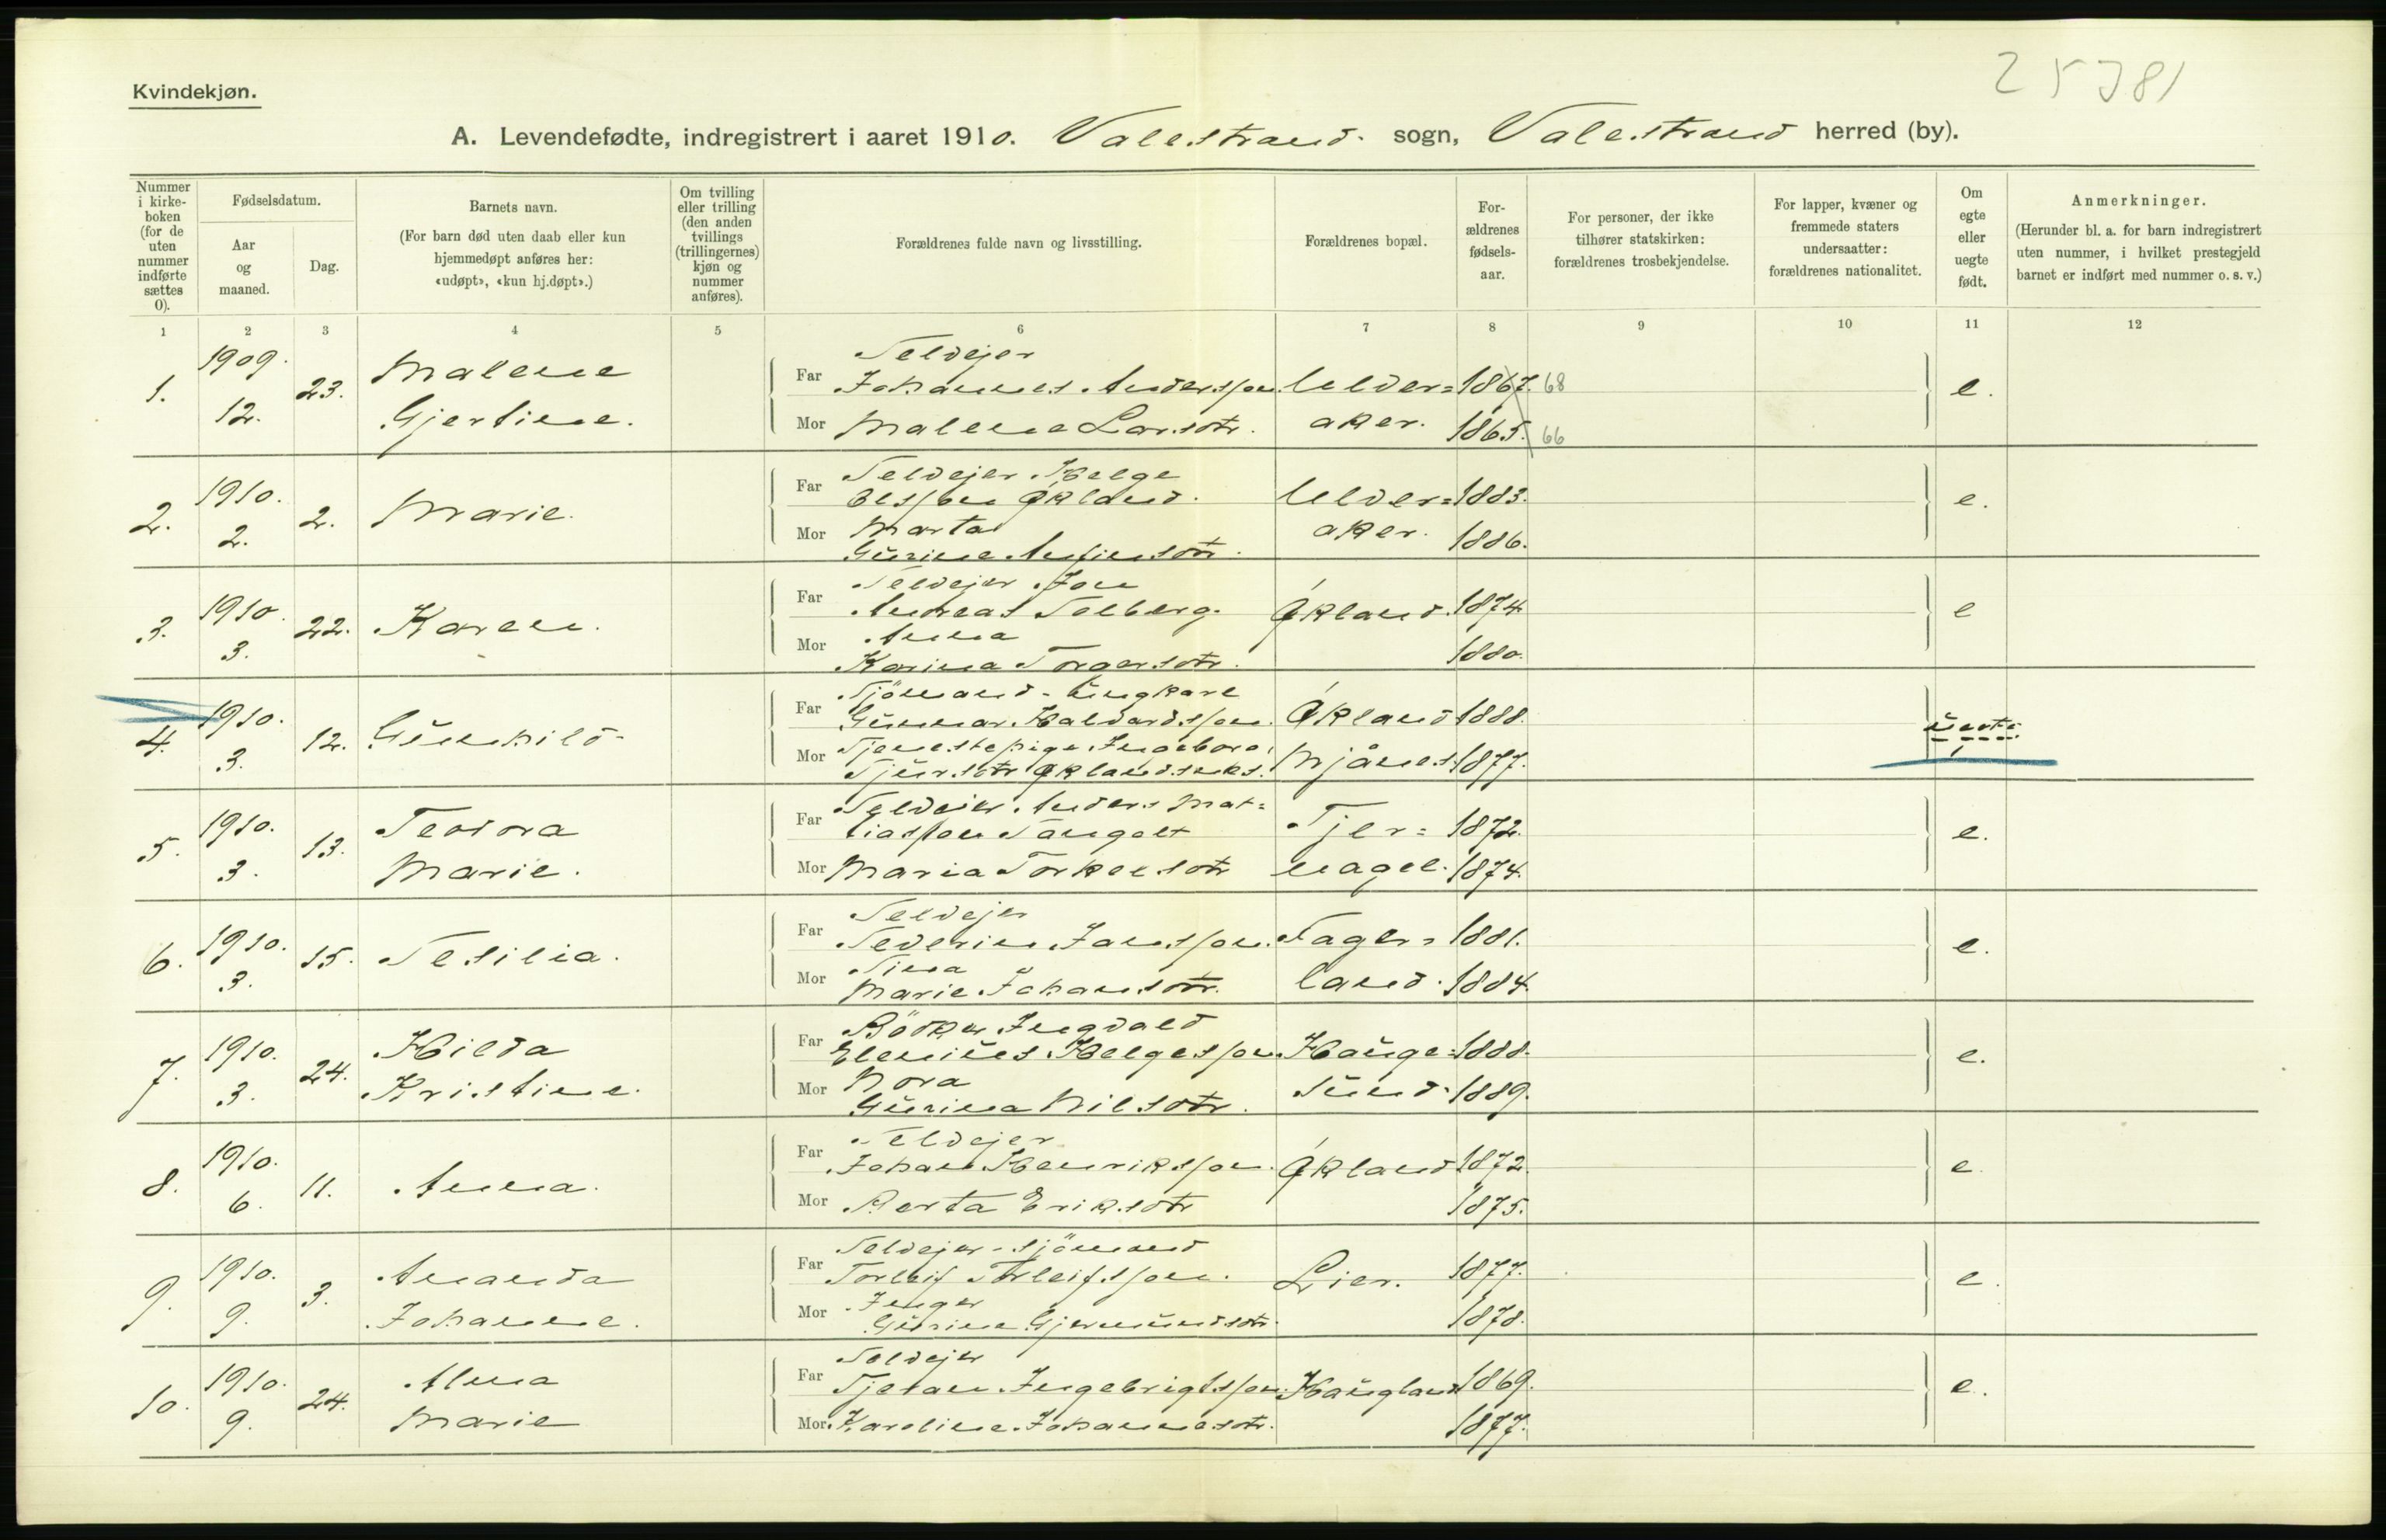 25381
Kvindekjøn.
A. Levendefødte, indregistrert i aaret 1910. Valestrand sogn, Valestrand herred (by).
Nummer i kirke-boken (for de uten nummer indførte sættes 0).
Fødselsdatum.
Aar og maaned.
Dag.
Barnets navn.
(For barn død uten daab eller kun hjemmedøpt anføres her: «udøpt», «kun hj.døpt».)
Om tvilling eller trilling (den anden tvillings (trillingernes) kjøn og nummer anføres).
Forældrenes fulde navn og livsstilling.
Forældrenes bopæl.
For-ældrenes fødsels-aar.
For personer, der ikke tilhører statskirken: forældrenes trosbekjendelse.
For lapper, kvæner og fremmede staters undersaatter: forældrenes nationalitet.
Om egte eller uegte født.
Anmerkninger.
(Herunder bl. a. for barn indregistrert uten nummer, i hvilket prestegjeld barnet er indført med nummer o. s. v.)
1 2 3 4 5 6 7 8 9 10 11 12
1. 1909. 12. 23. Malene Gjertine.
Far Selvejer Johannes Andersson. Ulder= 1867. 68 e.
Mor Malene Larsdtr. aker. 1865. 66
2. 1910. 2. 2. Marie.
Far Selvejer Helge Olsson Økland. Ulder= 1883. e.
Mor Marta Gurine dtr. aker. 1886.
3. 1910. 3. 22. Karen.
Far Selvejer Jon Andreas Solberg. Økland. 1874. e
Mor Anna Karina Torgersdtr. 1880.
4. 1910. 3. 12. Gunhild
Far Sjömand - Ungkarl Gunnar Halvardsson. Økland 1888. Uegte
Mor Tjenestepige Ingeborg Sjursdtr Øklandsnes. Mjånes. 1877.
5. 1910. 3. 13. Teodora Marie.
Far Selvejer Anders Mat= tiasson Tjer= 1872. e.
Mor Maria Torkelsdtr nagel. 1874.
6. 1910. 3. 15. Sesilia.
Far Selvejer Severin Jansson. Fager= 1881. e.
Mor Sina Marie Johansdtr. land. 1884.
7. 1910. 3. 24. Hilda Kristine.
Far Bödker Ingvald Elenius Helgesson. Hauge= 1888. e.
Mor Nora Gurina Nilsdtr. sund. 1889.
8. 1910. 6. 11. Anna.
Far Selvejer Johan Henriksson. Økland 1872. e.
Mor Berta Eriksdtr 1875.
9. 1910. 9. 3. Amanda Johanne.
Far Selvejer - Sjömand Torleif Torleifsson. Lier. 1877. e.
Mor Inger Gurine Gjermundsdtr. 1878.
10. 1910. 9. 24. Alma Marie
Far Selvejer Ingebrigtsson. Haugland 1869. e.
Mor Karoline Johannesdtr. 1877.